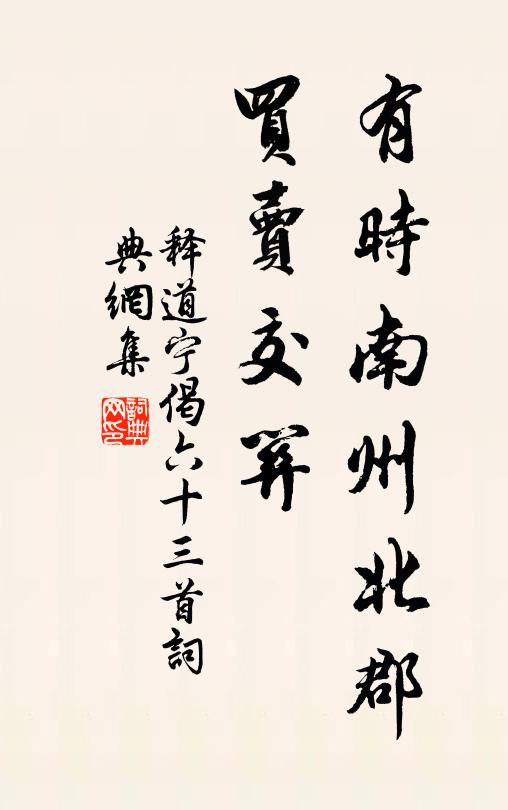 有時南州北郡
買賣交關
释道宁偈六十三首詞
典網集
詞典網印